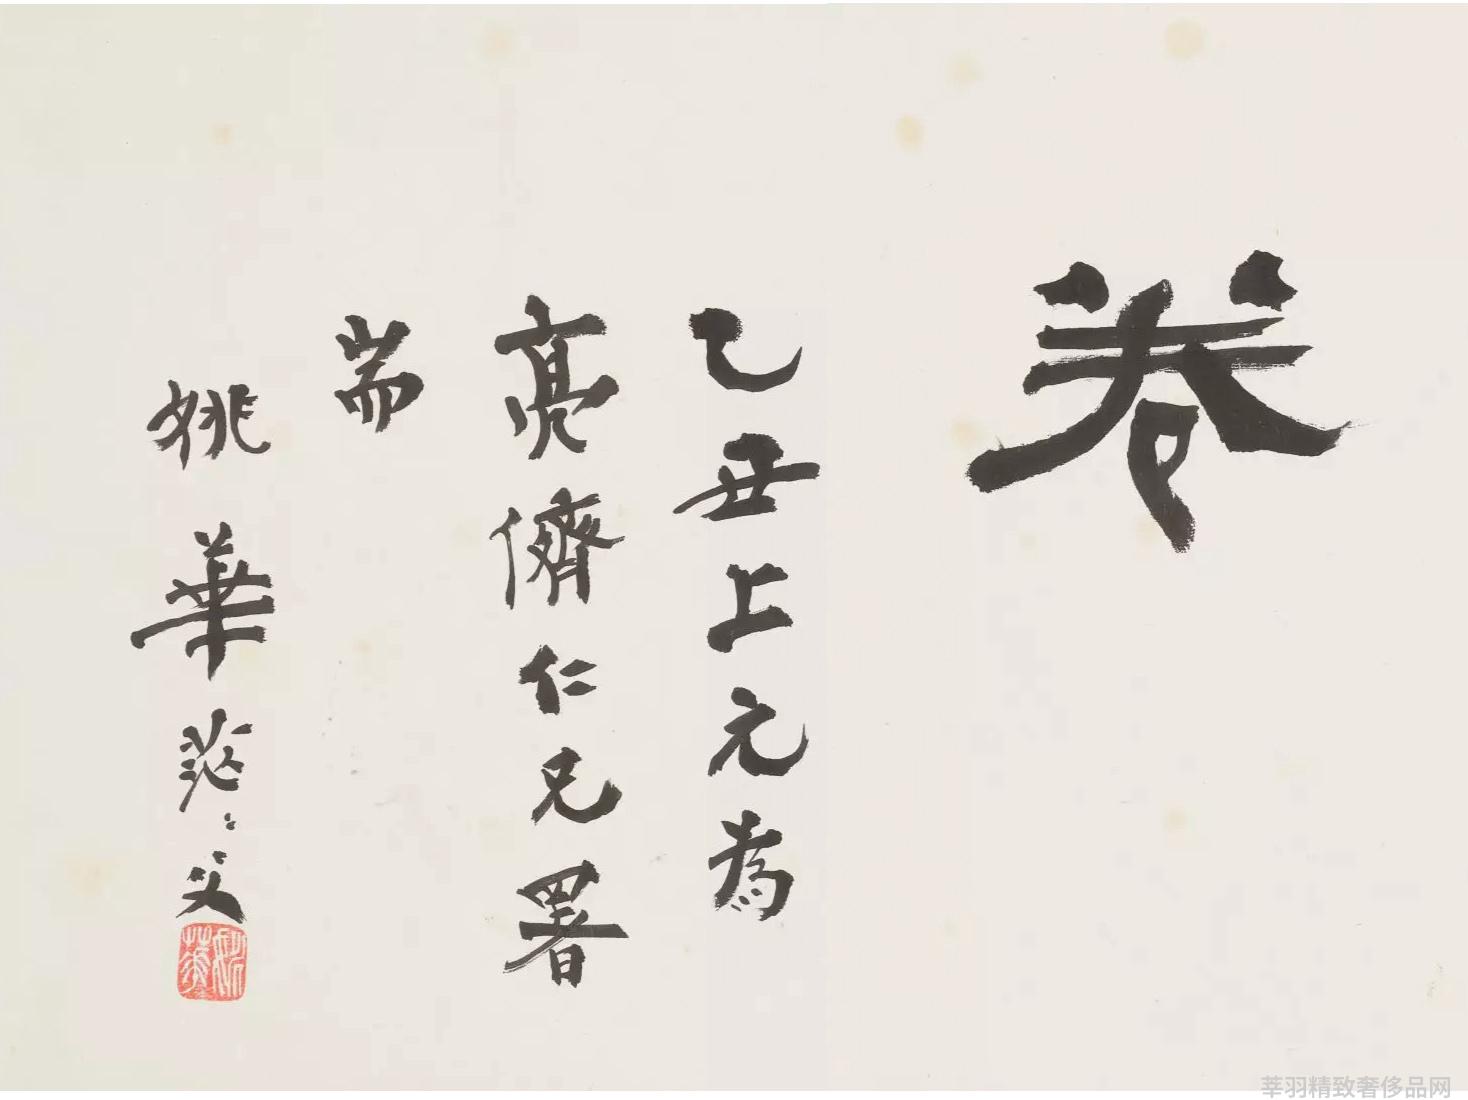 卷
乙丑上元為
亮儕仁兄署
耑
姚華茫茫父
姚華
莘羽精致奢侈品网